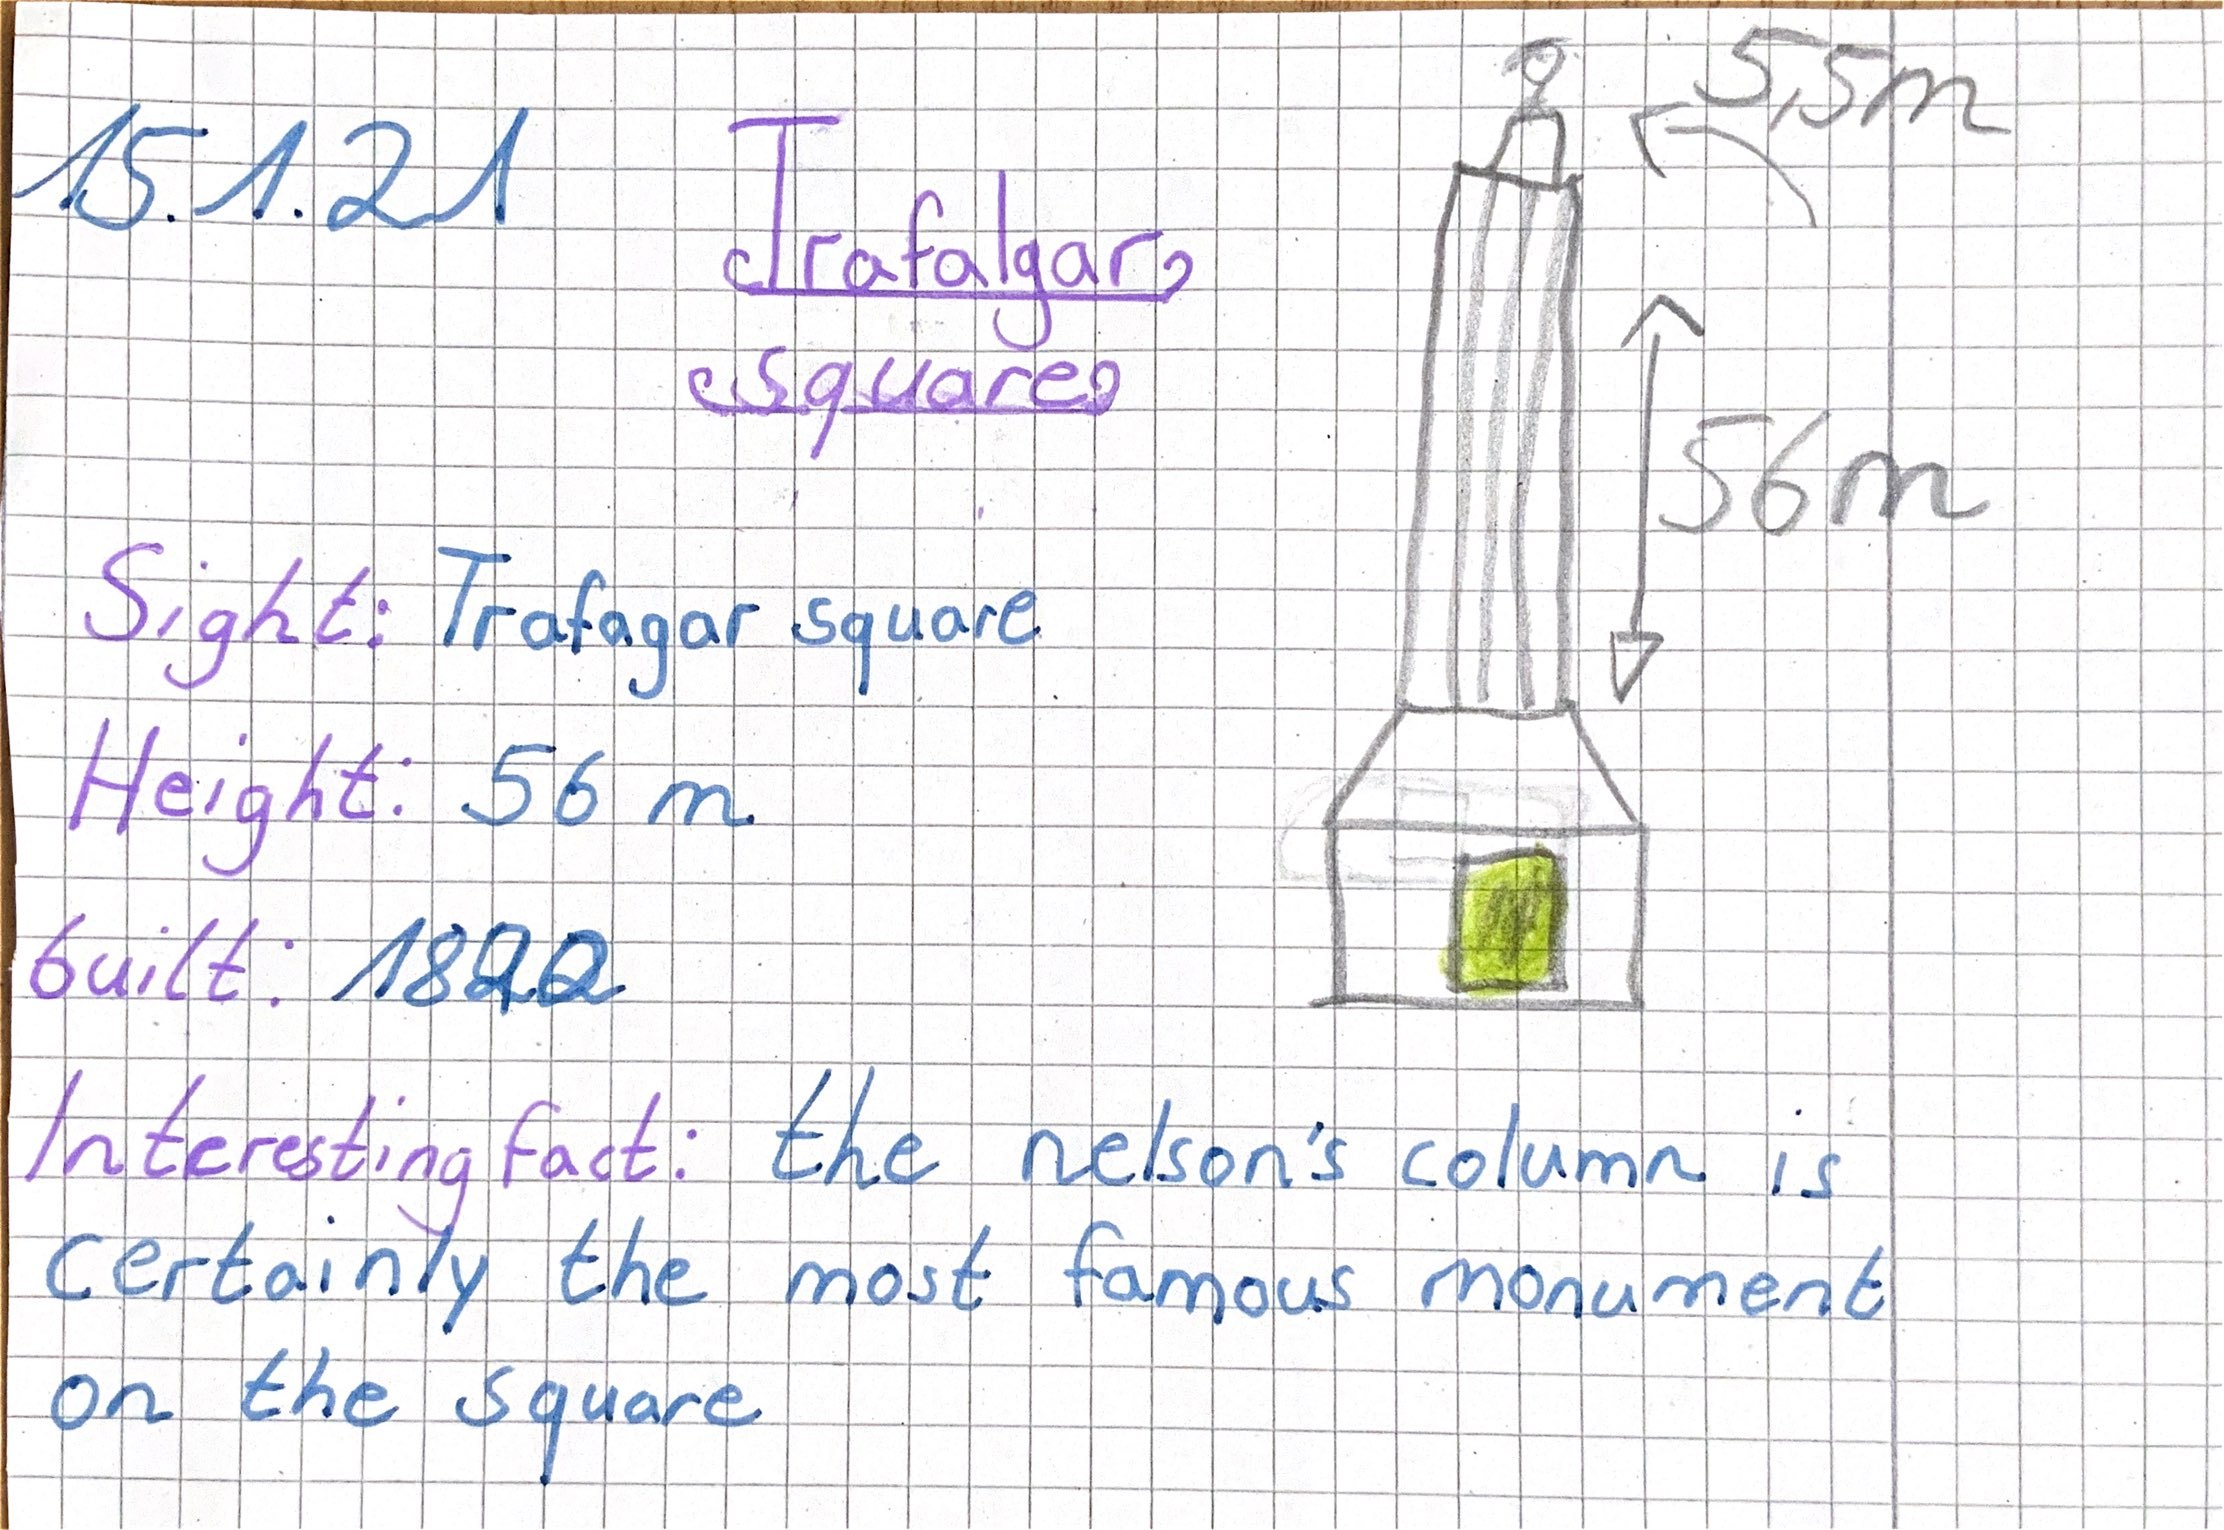 15.1.21
Trafalgar
square
5,5m
56m
Sight: Trafagar square
Height: 56 m
built: 1820
Interesting fact: the nelson's column is
certainly the most famous monument
on the square